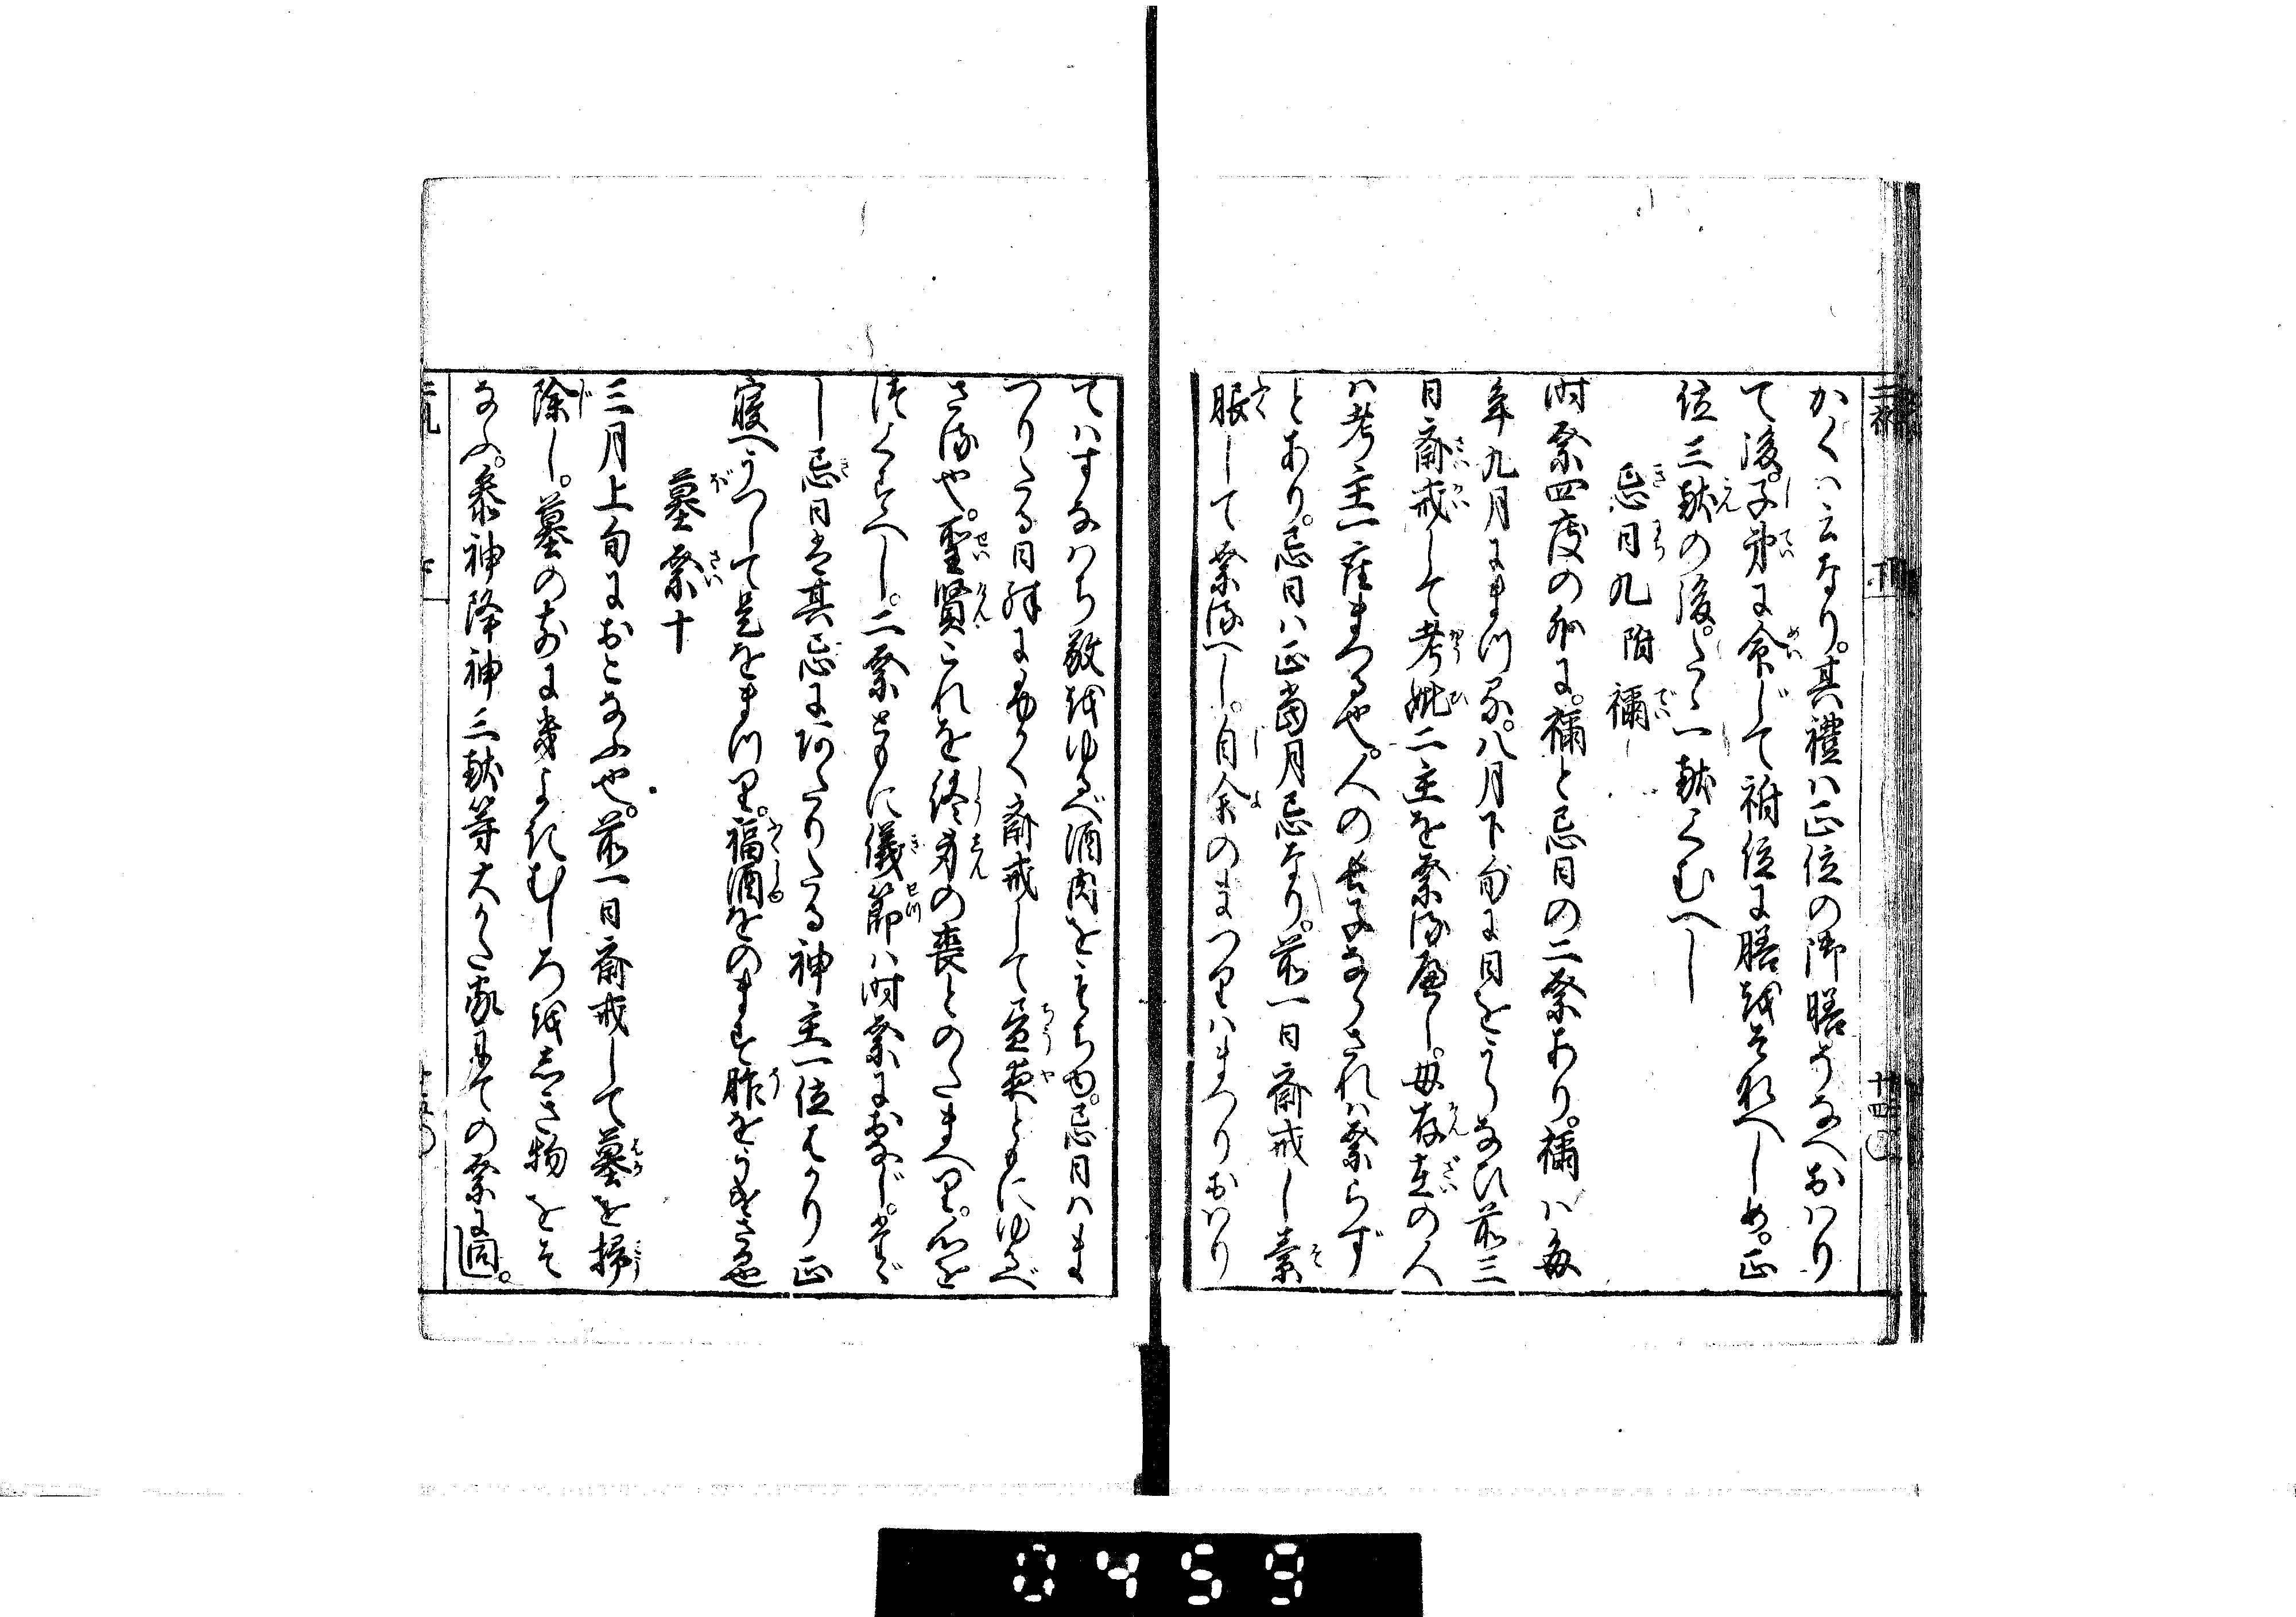 かくハ云なり。其禮ハ正位の御膳そなへおハり
て後。子弟に命じて祔位に膳をそなへしめ。正
位三献の後。たゝ一献くむへし
忌日九 附禰
時祭四度の外に。禰と忌日の二祭あり。禰ハ毎
年九月にまつる。八月下旬に日をうらなひ前三
日齋戒して考妣二主を祭るべし。母存在の人
ハ考主一座まつる也。人の長子ならされハ祭らず
とあり。忌日ハ正當月忌なり。前一日齋戒し素
服して祭るへし。自余のまつりハまつりおハり
てハすなハち敬をゆるべ酒肉をもちゆ。忌日ハま
つりたる日殊にふかく齋戒して晝夜ともにゆるべ
さる也。聖賢これを終身の喪とのたまへり。心を
つくすへし。二祭ともに儀節ハ時祭におなじ。たゞ
し忌日は其忌にあたりたる神主一位はかり正
寝へうつして是をまつり。福酒をのます胙をうけさる也
墓祭十
三月上旬におこなふ也。前一日齋戒して墓を掃
除し。墓のまへに幾よきむしろをしき物をそ
なふ。参神降神三献等大かた家にての祭に同。
0459